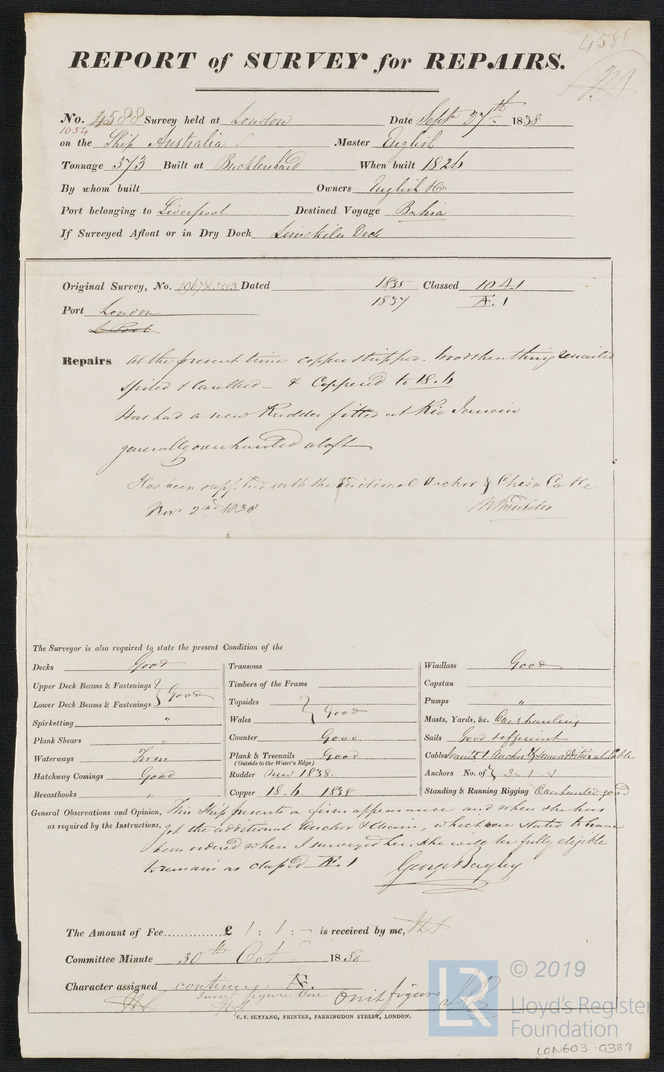 4588
REPORT of SURVEY for REPAIRS.
No. 4588 Survey held at London Date Sept 27th 1838
1054
on the Ship Australia Master English
Tonnage 373 Built at Bucklerhard When built 1826
By whom built Owners English & Co
Port belonging to Liverpool Destined Voyage Bahia
If Surveyed Afloat or in Dry Dock Limekiln Dock
Original Survey, No. Dated 1835 Classed 10 A 1
1837 Æ 1
Port London
L Pool
Repairs at the present time copper stripped. Wood sheathing
Spiled & Caulked - & Coppered to 18.6
Has had a new Rudder fitted at Rio Janeiro
generally overhauled aloft
Has been supplied with the additional Anchor & Chain Cable
Nov 2nd 1838
The Surveyor is also required to state the present Condition of the
Decks Good Transoms Windlass Good
Upper Deck Beams & Fastenings } Good Timbers of the Frame Capstan
Lower Deck Beams & Fastenings Topsides } Good Pumps "
Spirketting " Wales Masts, Yards, &c. Overhauling
Plank Shears " Counter Good Sails Good & sufficient
Waterways Firm Plank & Treenails Good Cables wants 1 Anchor & additional Cable
(Outside to the Water's Edge)
Hatchway Comings Good Rudder New 1838. Anchors No. of } 3 . 1 . 1
Breasthooks " Copper 18.6 1838 Standing & Running Rigging Overhauled good
General Observations and Opinion, This Ship presents a firm appearance and when she has
as required by the Instructions, got the additional Anchor & Chain, which were stated to have
been ordered when I surveyed her. She will be fully eligible
to remain as classed Æ 1
George Bayley
The Amount of Fee.............. £ 1 : 1 : - is received by me,
Committee Minute 30th Oct 1838
Character assigned continue Æ
Insert figure One Omit figure
C. F. SEYFANG, PRINTER, FARRINGDON STREET, LONDON.
LR © 2019
Lloyd's Register
Foundation
LON603-0389